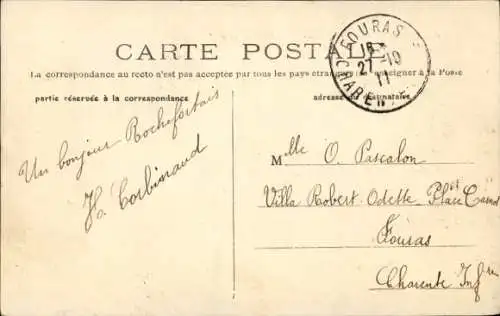 CARTE POSTALE
La correspondance au recto n'est pas acceptée par tous les pays étrangers (se renseigner à la Poste
partie réservée à la correspondance
adresse du destinataire
FOURAS
27-10
11
CHARENTE
Un bonjour Rochefortais
H. Corbinaud
Mlle O. Pascalon
Villa Robert Odette Place Carnot
Fouras
Charente Infre